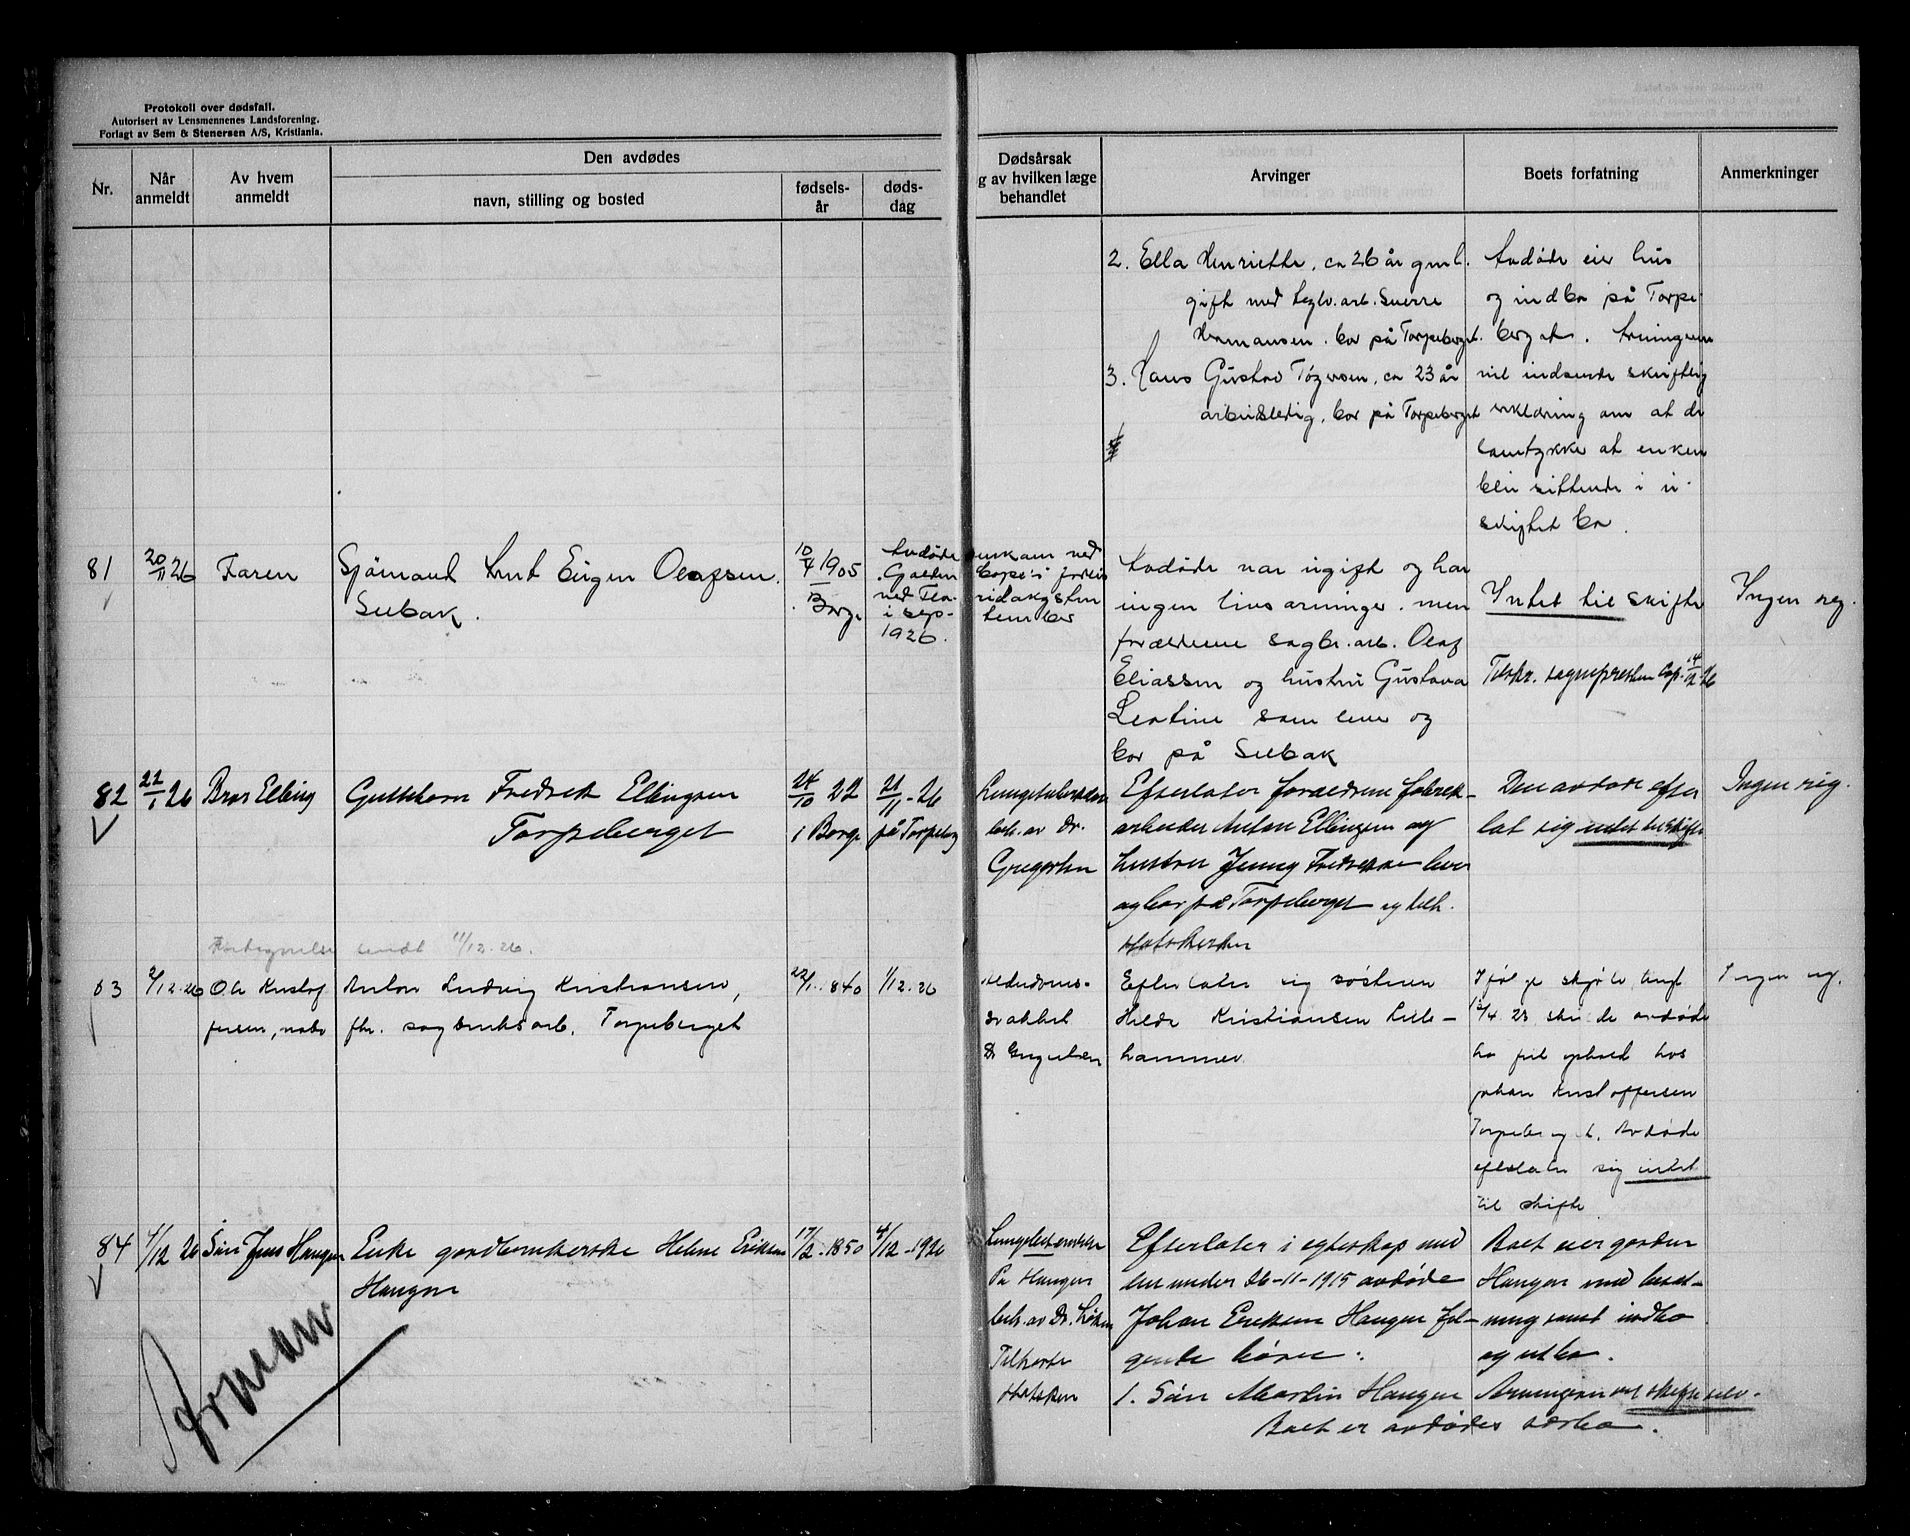 Protokoll over dødsfall.
Autorisert av Lensmennenes Landsforening.
Forlagt av Sem & Stenersen A/S, Kristiania.
Nr.
Når anmeldt
Av hvem anmeldt
Den avdødes
navn, stilling og bosted
fødsels-år
døds-dag
Dødsårsak
g av hvilken læge behandlet
Arvinger
Boets forfatning
Anmerkninger
2. Ella Henriette, ca 26 år gml.
gift med arb. Sverre
Hermansen. bor på Torpeberget.
3. Hans Gustav, ca 23 år
arbeidsledig, bor på Torpeberget
Avdøde eier hus
og indbo på Torpe-
berget. Arvingerne
vil indsende skriftlig
erklæring om at de
samtykke at enken
blir sittende i u-
skiftet bo.
81
20/11 26
Faren
Sjömand Arnt Eugen Olafsen.
Selbak.
10/4 1905
Borge
Avdøde omkom ved
Galden
ved Flo-ridakysten
i sep-tember
1926.
Avdøde var ugift og har
ingen livsarvinger. men
forældrene sagbr. arb. Olaf
Eliassen og hustru Gustava
Leotine som lever og
bor på Selbak
Intet til skifte
Tilskr. sognepresten 14/12 26
Ingen reg.
82
22/1 26
Bror Elling
Gutthorm Fredrek Ellingsen
Torpeberget
24/10 22
i Borge
21/11 - 26
på Torpeberg
Lungetuberkulose
beh. av Dr.
Gregersen
Efterlater forældrene fabrek-
arbeider Anton Ellingsen og
hustru Jenny Fredrekke lever
og bor på Torpeberget og tilh.
statskirken
Den avdøde efter
lot sig intet til skifte
Ingen reg.
Fortegnelse sendt 11/12.26.
83
2/12.26
Ole Kristof
fersen, nabo
Anton Ludvig Kristiansen,
fhr. sagbruksarb. Torpeberget
22/1. 840
1/12.26
Alderdoms-
svakhet
Dr Engelsen
Efterlater sig søsteren
Hilda Kristiansen Lille-
hammer.
Ifølge skjøte tingl
4. 23 skulde avdøde
ha frit ophold hos
Johan Kristoffersen
Torpeberget. Avdøde
efterlater sig intet
til skifte
Ingen reg.
84
4/12 26
Sön Jens Haugen
Enke gardbrukerske Helene Eriksen
Haugen
17/2 - 1850
4/12 - 1926
På Haugen
beh. av Dr.
Tilhørte
statskirken
Efterlater i egteskap med
den under 26-11-1915 avdøde
Johan Eriksen Haugen føl-
gende børn:
1. Sön Martin Haugen
Boet eier garden
Haugen med besæt-
ning samt indbo
og utbo.
Arvingerne vil skifte selv.
Boet er avdødes særbo.